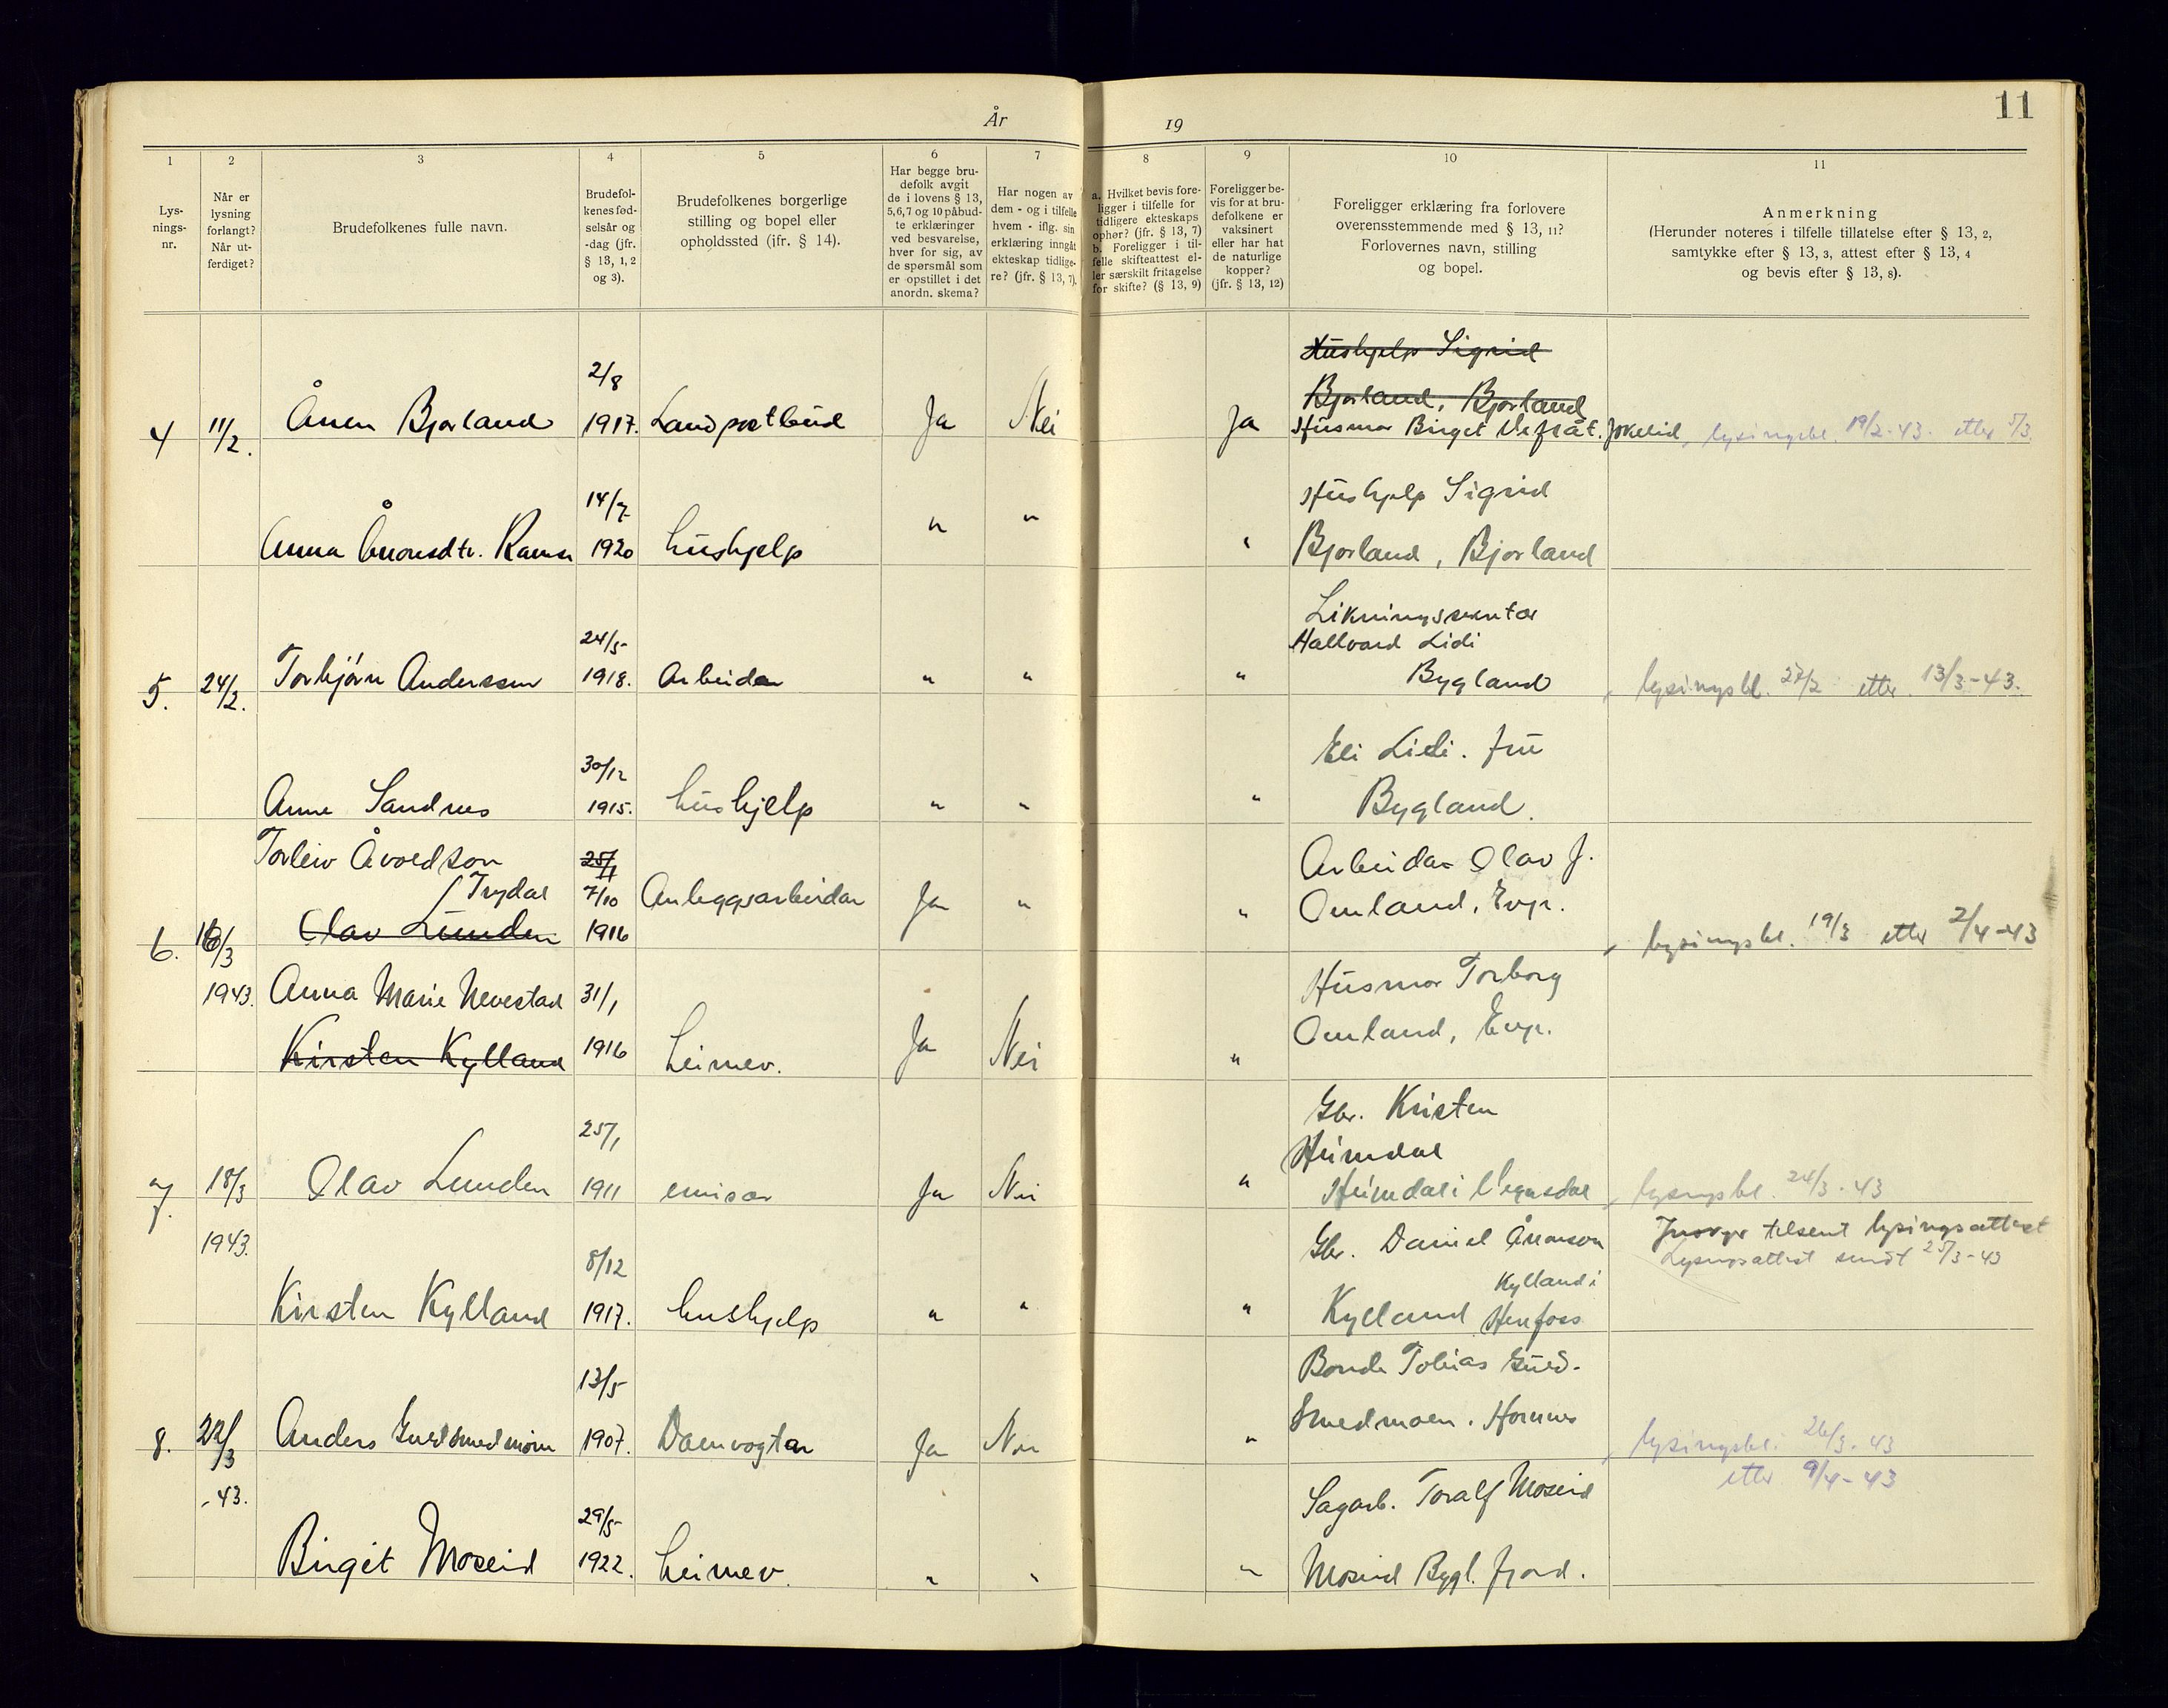 11
År 19
1
2
3
4
5
6
7
8
9
10
11
Lys-
nings-
nr.
Når er
lysning
forlangt?
Når ut-
ferdiget?
Brudefolkenes fulle navn.
Brudefol-
kenes fød-
selsår og
-dag (jfr.
§ 13, 1, 2
og 3).
Brudefolkenes borgerlige
stilling og bopel eller
opholdssted (ifr. § 14).
Har begge bru-
defolk avgit
de i lovens § 13,
5,6,7 og 10 påbud-
te erklæringer
ved besvarelse,
hver for sig, av
de spørsmål som
er opstillet i det
anordn. skema?
Har nogen av
dem - og i tilfelle
hvem - iflg. sin
erklæring inngått
ekteskap tidlige-
re? (jfr. § 13, 7).
a. Hvilket bevis fore-
ligger i tilfelle for
tidligere ekteskaps
ophør? (jfr. § 13, 7)
b. Foreligger i til-
felle skifteattest el-
ler særskilt fritagelse
for skifte? (§ 13, 9)
Foreligger be-
vis for at bru-
defolkene er
vaksinert
eller har hat
de naturlige
kopper?
(jfr. § 13, 12)
Foreligger erklæring fra forlovere
overensstemmende med § 13, 11?
Forlovernes navn, stilling
og bopel.
Anmerkning
(Herunder noteres i tilfelle tillatelse efter § 13, 2,
samtykke efter § 13, 3, attest efter § 13, 4
og bevis efter § 13, 8).
Hushjelp Sigrid
2/8
Bjorland, Bjorland
4 11/2. Ånen Bjorland 1917. Landpostbud Ja Nei Ja Husmor Birget Jokelid, lysingsbl. 19/2-43. etter 5/3.
14/7 Hushjelp Sigrid
Anna 1920 hushjelp " " " Bjorland, Bjorland
Hallvard Lidi
24/5
5. 24/2. Torbjörn Anderssen 1918. Arbeidar " " " Bygland lysingsbl. 27/2 etter 13/3-43.
30/12 Eli Lidi. fru
Anne Sandnes 1915. hushjelp " " " Bygland.
Torleiv Åvoldson 25/11 Arbeidar Olav J.
Trydal 7/10 Anleggsarbeidar Ja " " Omland, Evje.
6. 16/3 Olav Lunden 1916 lysingsbl. 19/3 etter 2/4-43
1943. Anna Marie Nevestad 31/1 Husmor Torborg
Kirsten Kylland 1916 heimev. Ja Nei " Omland, Evje.
25/1 Gbr. Kristen
Heimdal
7. 18/3 Olav Lunden 1911 emisær Ja Nei " Heimdal i Vegusdal lysingsbl. 24/3-43
1943. 8/12 Gbr. Daniel Ånonson tilsent lysingsattest
Lysingsattest sendt 25/3-43
Kylland i
Kirsten Kylland 1917. hushjelp " " " Kylland
13/5 Bonde Tobias Gud.
8. 22/3 Anders 1907. Damvogtar Ja Nei " Smedmoen. Hornnes lysingsbl. 26/3-43
-43. 29/5 Sagarb. Toralf Moseid etter 9/4-43
Birgit Moseid 1922. heimev. " " " Moseid Bygl. fjord.